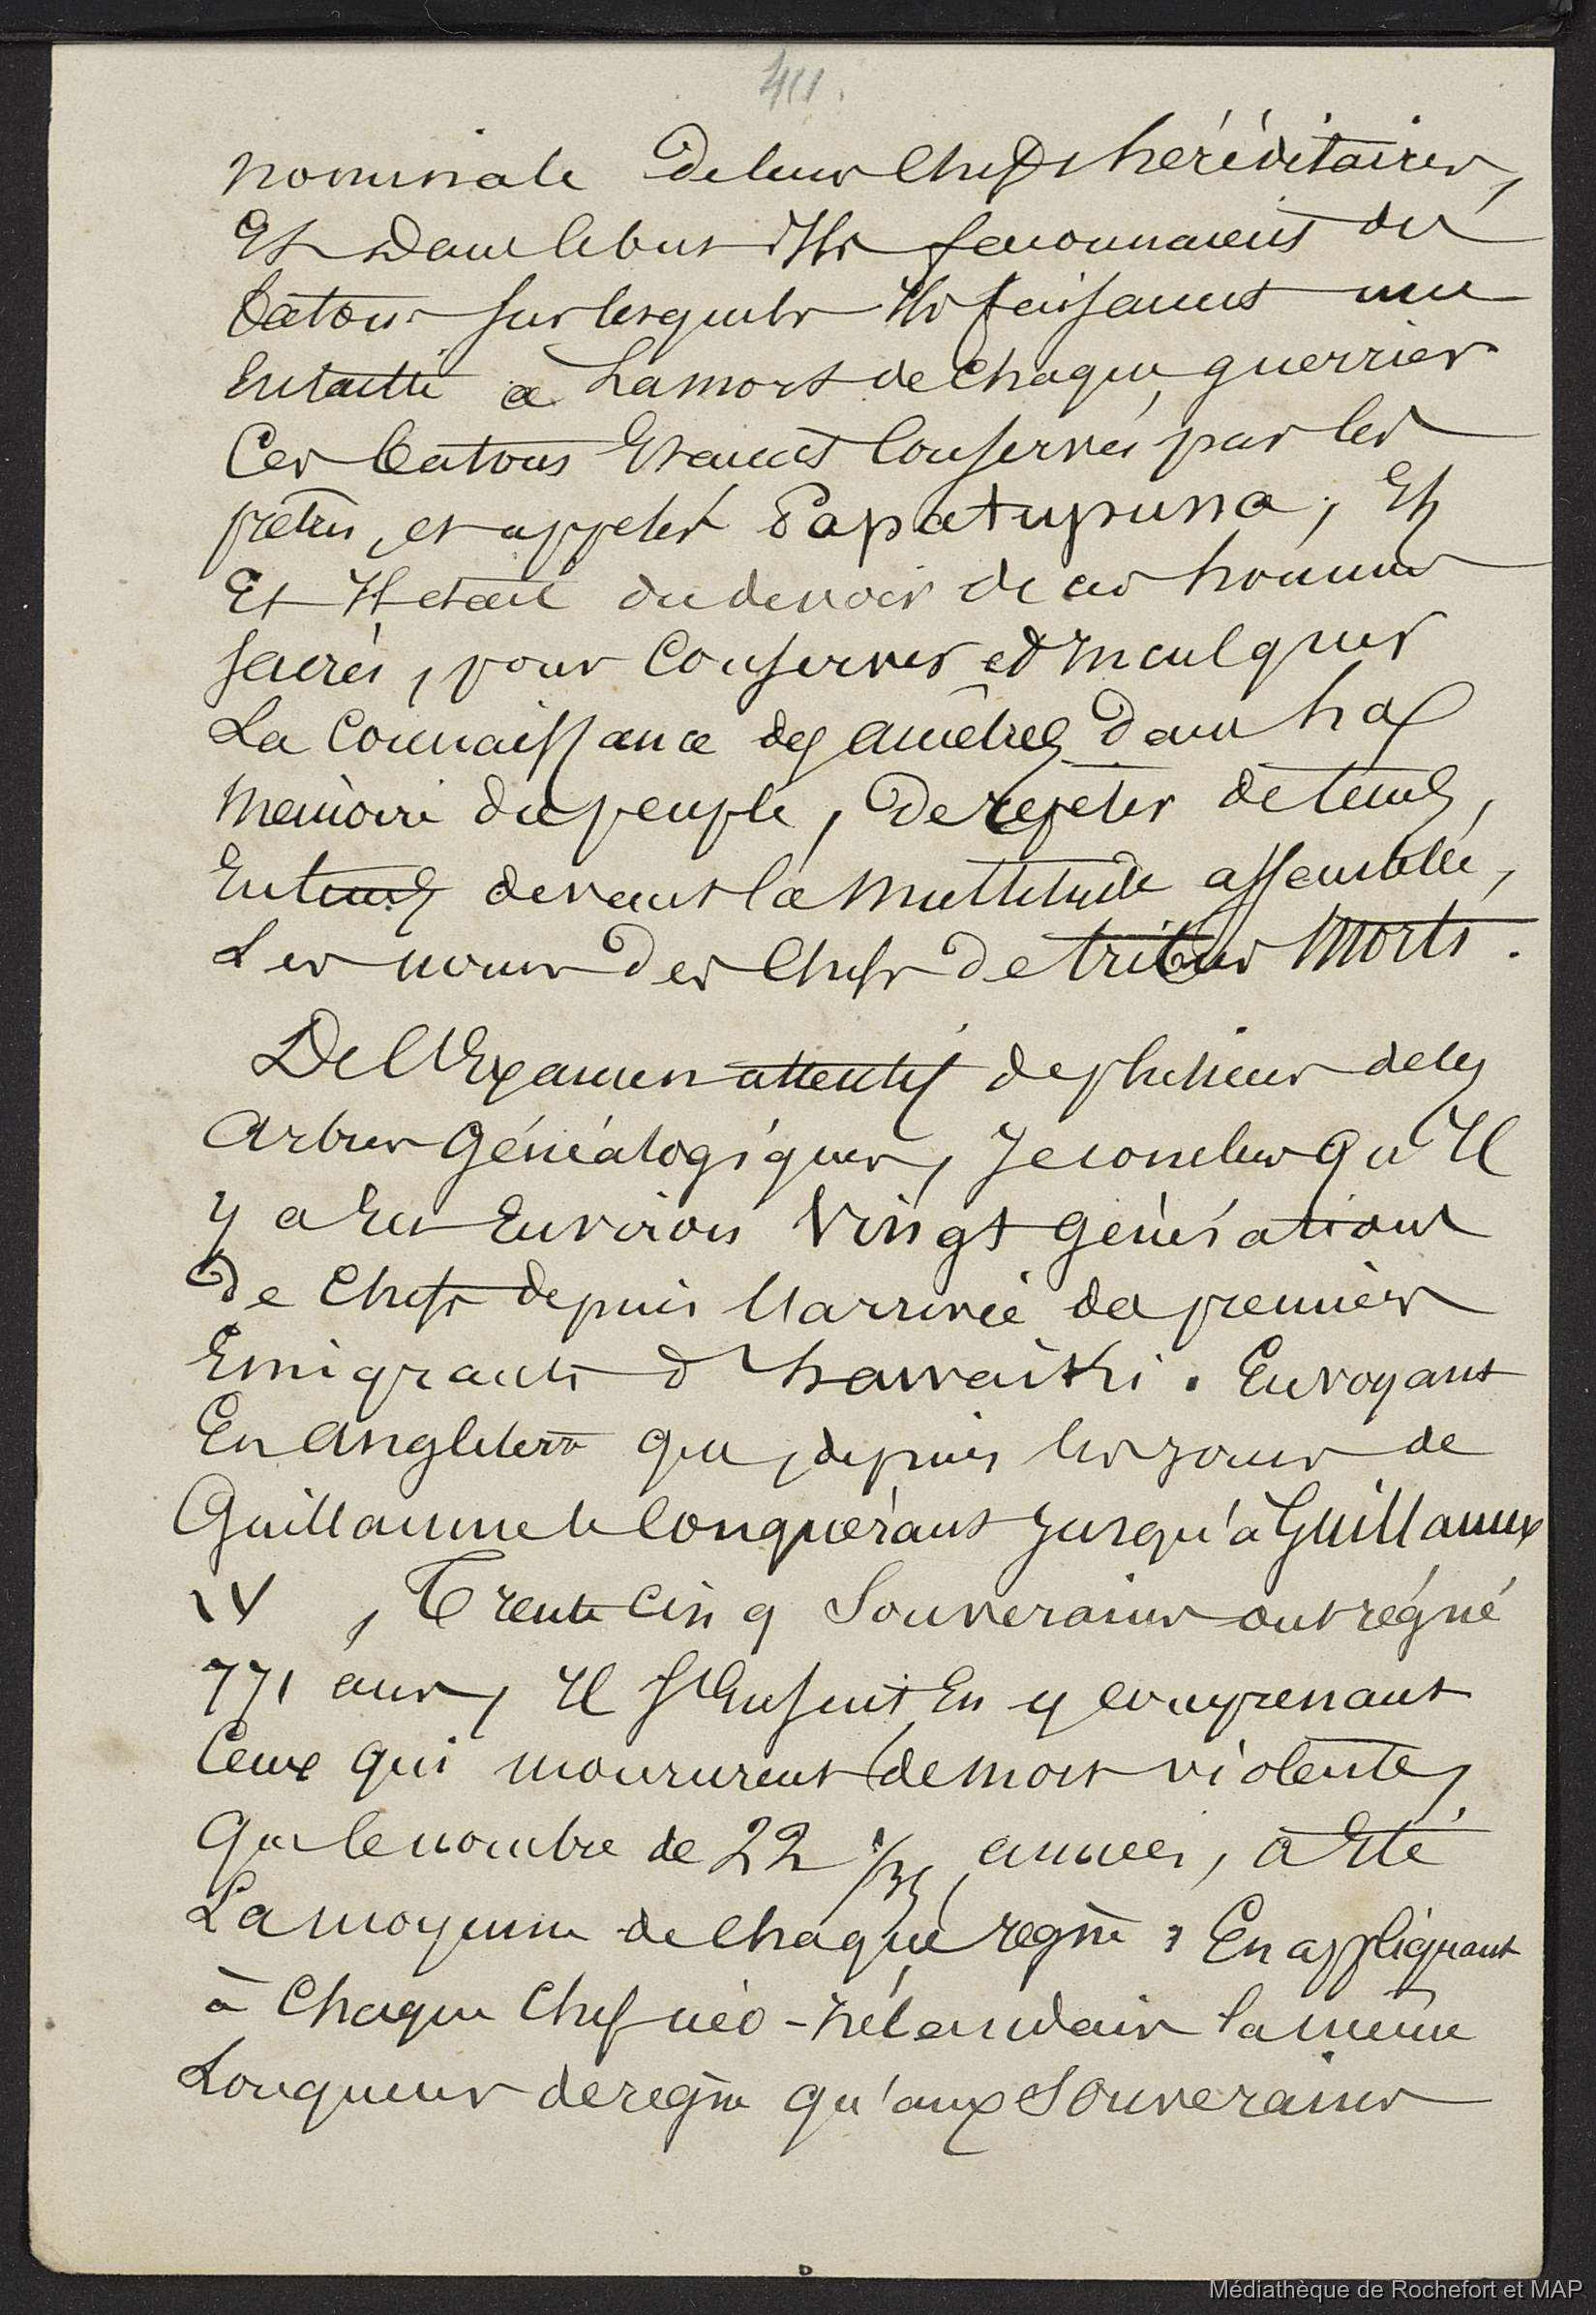 411.
nominale de leurs Chefs héréditaires,
Et dans le but Ils façonnaient des
batons sur lesquels Ils faisaient une
Entaille à La mort de Chaque guerrier
Ces batons Etaient Conservés par les
prêtres, et appelés Papatupuna, Et
Et Il etait du devoir de ces hommes
sacrés, pour Conserver et Inculquer
La Connaissance des ancêtres dans la
Memoire du peuple, De repeter de temps,
En temps devant la Multitude assemblée,
Les noms Des Chefs De tribus Morts.
De l'Examen attentif de plusieurs de ces
Arbres Généalogiques, Je conclus qu'Il
y a Eu Environ Vingt Générations
De Chefs depuis l'arrivée des premiers
Emigrants d'hawaïki. En voyant
En Angleterre que, depuis les jours de
Guillaume le Conquérant Jusqu'à Guillaume
IV, Trente Cinq Souverains ont régné
771 ans, Il s'Ensuit En y comprenant
Ceux qui moururent de mort violente,
Que le nombre de 22 1/35 années, a Eté
La moyenne de Chaque regne; En appliquant
à Chaque Chef néo-zélandais la même
Longueur de regne qu'aux Souverains
Médiathèque de Rochefort et MAP